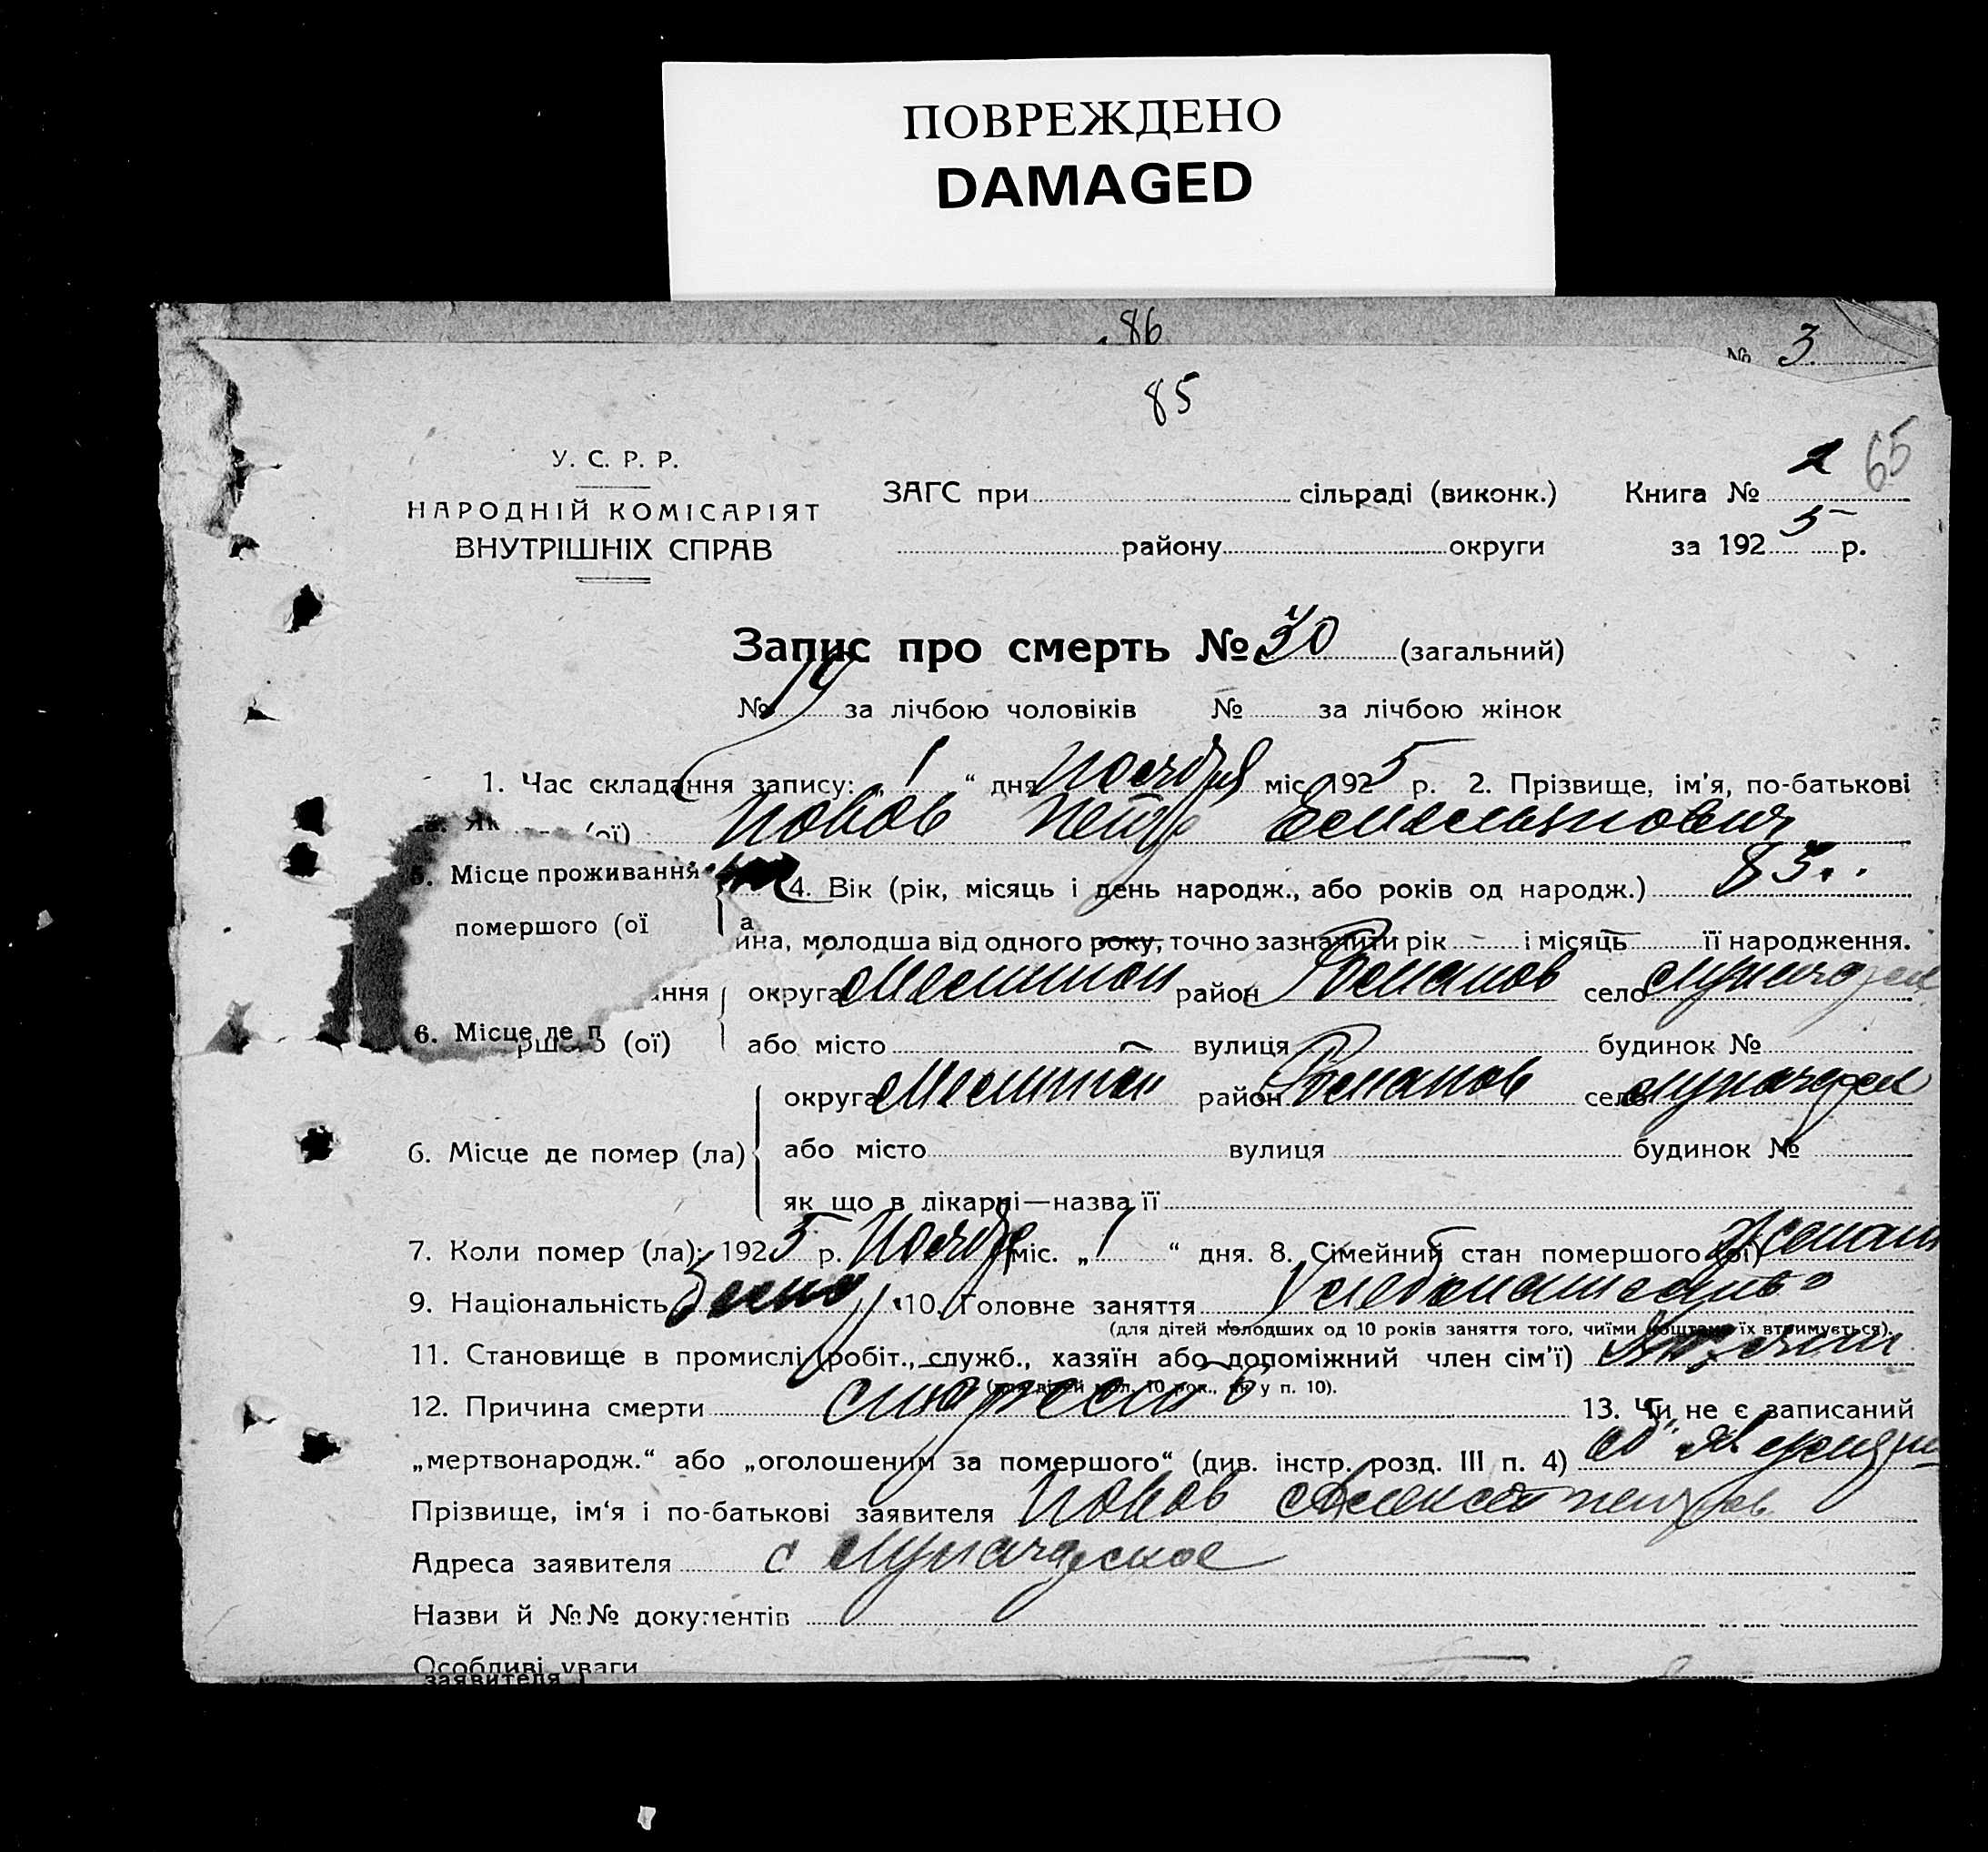 ПОВРЕЖДЕНО
DAMAGED
86
№ 3
85
65
У. С. Р. Р.
НАРОДНІЙ КОМІСАРІЯТ
ВНУТРІШНІХ СПРАВ
ЗАГС при сільраді (виконк.) Книга №
району округи за 1925 р.
Запис про смерть № 30 (загальний)
№ 14 за лічбою чоловіків № за лічбою жінок
1. Час складання запису: „ 1 “ дня Ноября міс. 1925 р. 2. Прізвище, ім'я, по-батькові
(ої) Попов Петр Емельянович
5. Місце проживання 4. Вік (рік, місяць і день народж., або років од народж.) 85
помершого (ої
ина, молодша від одного року, точно зазначити рік і місяць її народження.
ання округа район Романов село
6. Місце де п
(ої) або місто вулиця будинок №
округа район Романов село
6. Місце де помер (ла) або місто вулиця будинок №
як що в лікарні—назва її
7. Коли помер (ла): 1925 р. Ноябр міс. „ 1 “ дня. 8. Сімейний стан помершого (ої) женат
9. Національність 10. Головне заняття
(для дітей молодших од 10 років заняття того, чиїми коштами їх втримується).
11. Становище в промислі (робіт., служб., хазяїн або допоміжний член сім'ї)
(для дітей мол. 10 рок., як у п. 10).
12. Причина смерти старость 13. Чи не є записаний
„мертвонародж.“ або „оголошеним за помершого“ (див. інстр. розд. III п. 4)
Прізвище, ім'я і по-батькові заявителя Попов Алексей Петров
Адреса заявителя с
Назви й №№ документів
Особливі уваги
заявителя